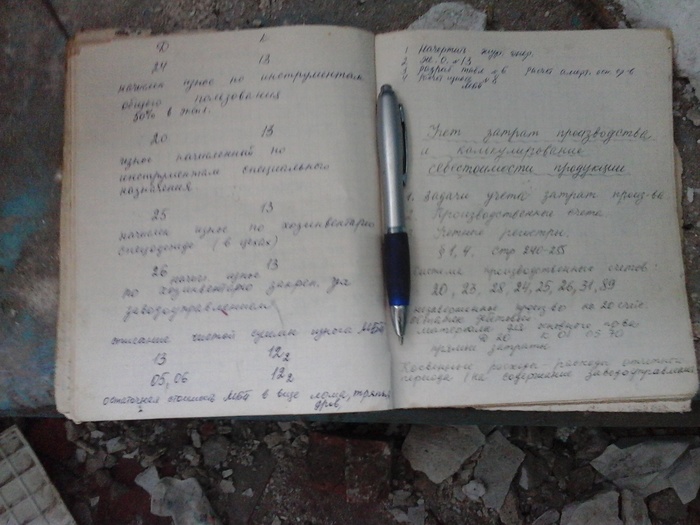 Д К
24 13
начислен износ по инструментам
общего пользования
50% в экспл.
20 13
износ начисленный по
инструментам специального
назначения
25 13
начислен износ по хозинвентарю
спецодежде (в цехах)
26 начис. износ 13
по хозинвентарю закреп. за
заводоуправлением
списание чистой суммы износа МБП
13 12₂
05, 06 12₂
остаточная стоимость МБП в виде лома, тряпья
дров
1 Начертить журн. опер.
2 ж.о. №13
3 разраб табл №6
4 №8
МБП
Учет затрат производства
и калькулирование
себестоимости продукции
1. Задачи учета затрат произ-ва
2. Производственные счета
Учетные регистры.
§ 1, 4. стр 240-255
Система производственных счетов:
20, 23, 28, 24, 25, 26, 31, 89
незавершенное произ-во на 20 счете.
материалы для основного пр-ва
Д 20 К 01 05 70
прямые затраты
Косвенные расходы расходы отчетного
периода (на содержание заводоуправлен